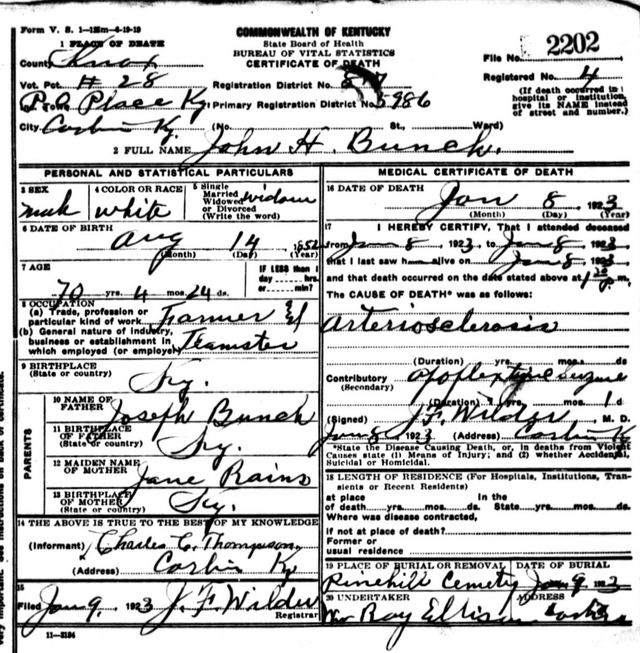 Form V. S. 1-125m-4-19-19
COMMONWEALTH OF KENTUCKY
State Board of Health
BUREAU OF VITAL STATISTICS
CERTIFICATE OF DEATH
1 PLACE OF DEATH
County Knox
File No. 2202
Vot. Pct. # 28
Registration District No.
Registered No. 4
P.O. Place Ky.
Primary Registration District No. 5986
(If death occurred in a hospital or institution, give its NAME instead of street and number.)
City Corbin Ky. (No. St., Ward)
2 FULL NAME John H. Bunch.
PERSONAL AND STATISTICAL PARTICULARS
3 SEX male
4 COLOR OR RACE white
5 Single Married Widowed or Divorced (Write the word) widow
6 DATE OF BIRTH Aug 14 1852
(Month) (Day) (Year)
7 AGE 70 yrs. 4 mos. 24 ds.
IF LESS than 1 day ..... hrs. or ..... min?
8 OCCUPATION
(a) Trade, profession or particular kind of work Farmer
(b) General nature of industry, business or establishment in which employed (or employer) Teamster
9 BIRTHPLACE
(State or country) Ky.
PARENTS
10 NAME OF FATHER Joseph Bunch
11 BIRTHPLACE OF FATHER (State or country) Ky.
12 MAIDEN NAME OF MOTHER Jane Rains
13 BIRTHPLACE OF MOTHER (State or country) Ky.
14 THE ABOVE IS TRUE TO THE BEST OF MY KNOWLEDGE
(Informant) Charles C. Thompson
(Address) Corbin Ky
15
Filed Jan 9, 1923 J. F. Wilder
Registrar
11-3184
MEDICAL CERTIFICATE OF DEATH
16 DATE OF DEATH Jan 8 1923
(Month) (Day) (Year)
17 I HEREBY CERTIFY, That I attended deceased
from Jan 8, 1923, to Jan 8, 1923
that I last saw h alive on Jan 8, 1923
and that death occurred on the date stated above at 1 p.m.
The CAUSE OF DEATH* was as follows:
Arteriosclerosis
(Duration) yrs. mos. ds
Contributory (Secondary)
(Duration) yrs. mos. 1 d
(Signed) J. F. Wilder M. D.
Jan 8, 1923 (Address) Corbin K
*State the Disease Causing Death, or, in deaths from Violent Causes state (1) Means of Injury; and (2) whether Accidental, Suicidal or Homicidal.
18 LENGTH OF RESIDENCE (For Hospitals, Institutions, Transients or Recent Residents)
at place of death yrs. mos. ds. In the State yrs. mos. ds
Where was disease contracted,
if not at place of death?
Former or usual residence
19 PLACE OF BURIAL OR REMOVAL Pinehill Cemety
DATE OF BURIAL Jan 9, 1923
20 UNDERTAKER Ray Ellison
ADDRESS